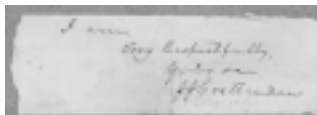 I am
Very Respectfully,
Yours &c
JJ Crittenden